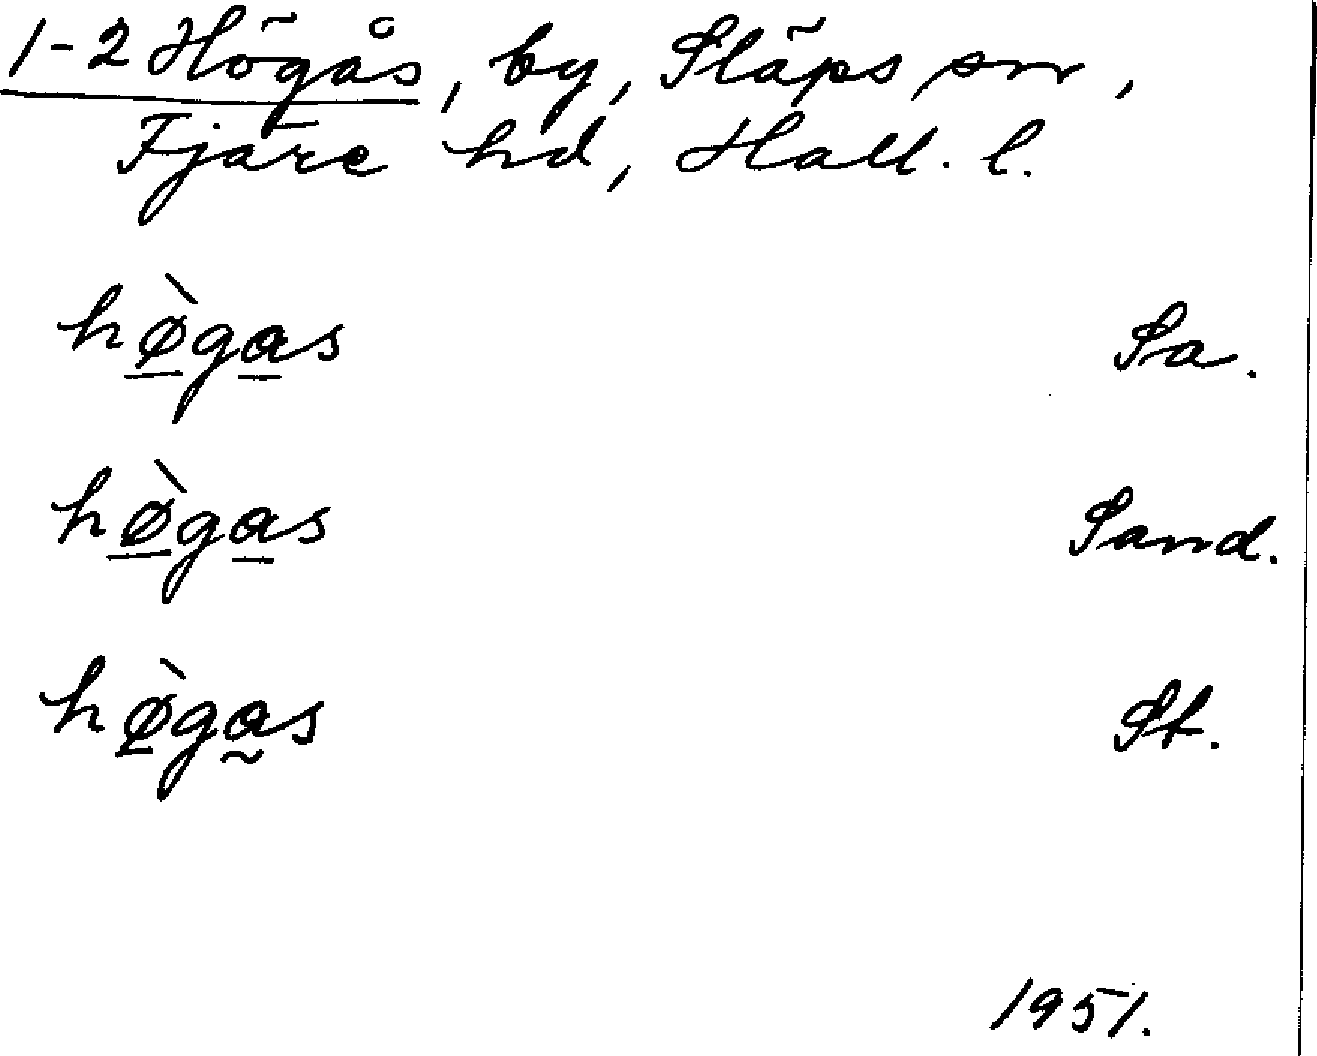 1-2 Högås, by, Släps sn,
Fjäre hd, Hall. l.
hø̀gas Sa.
hø̀gas Sand.
hø̀gas St.
1951.